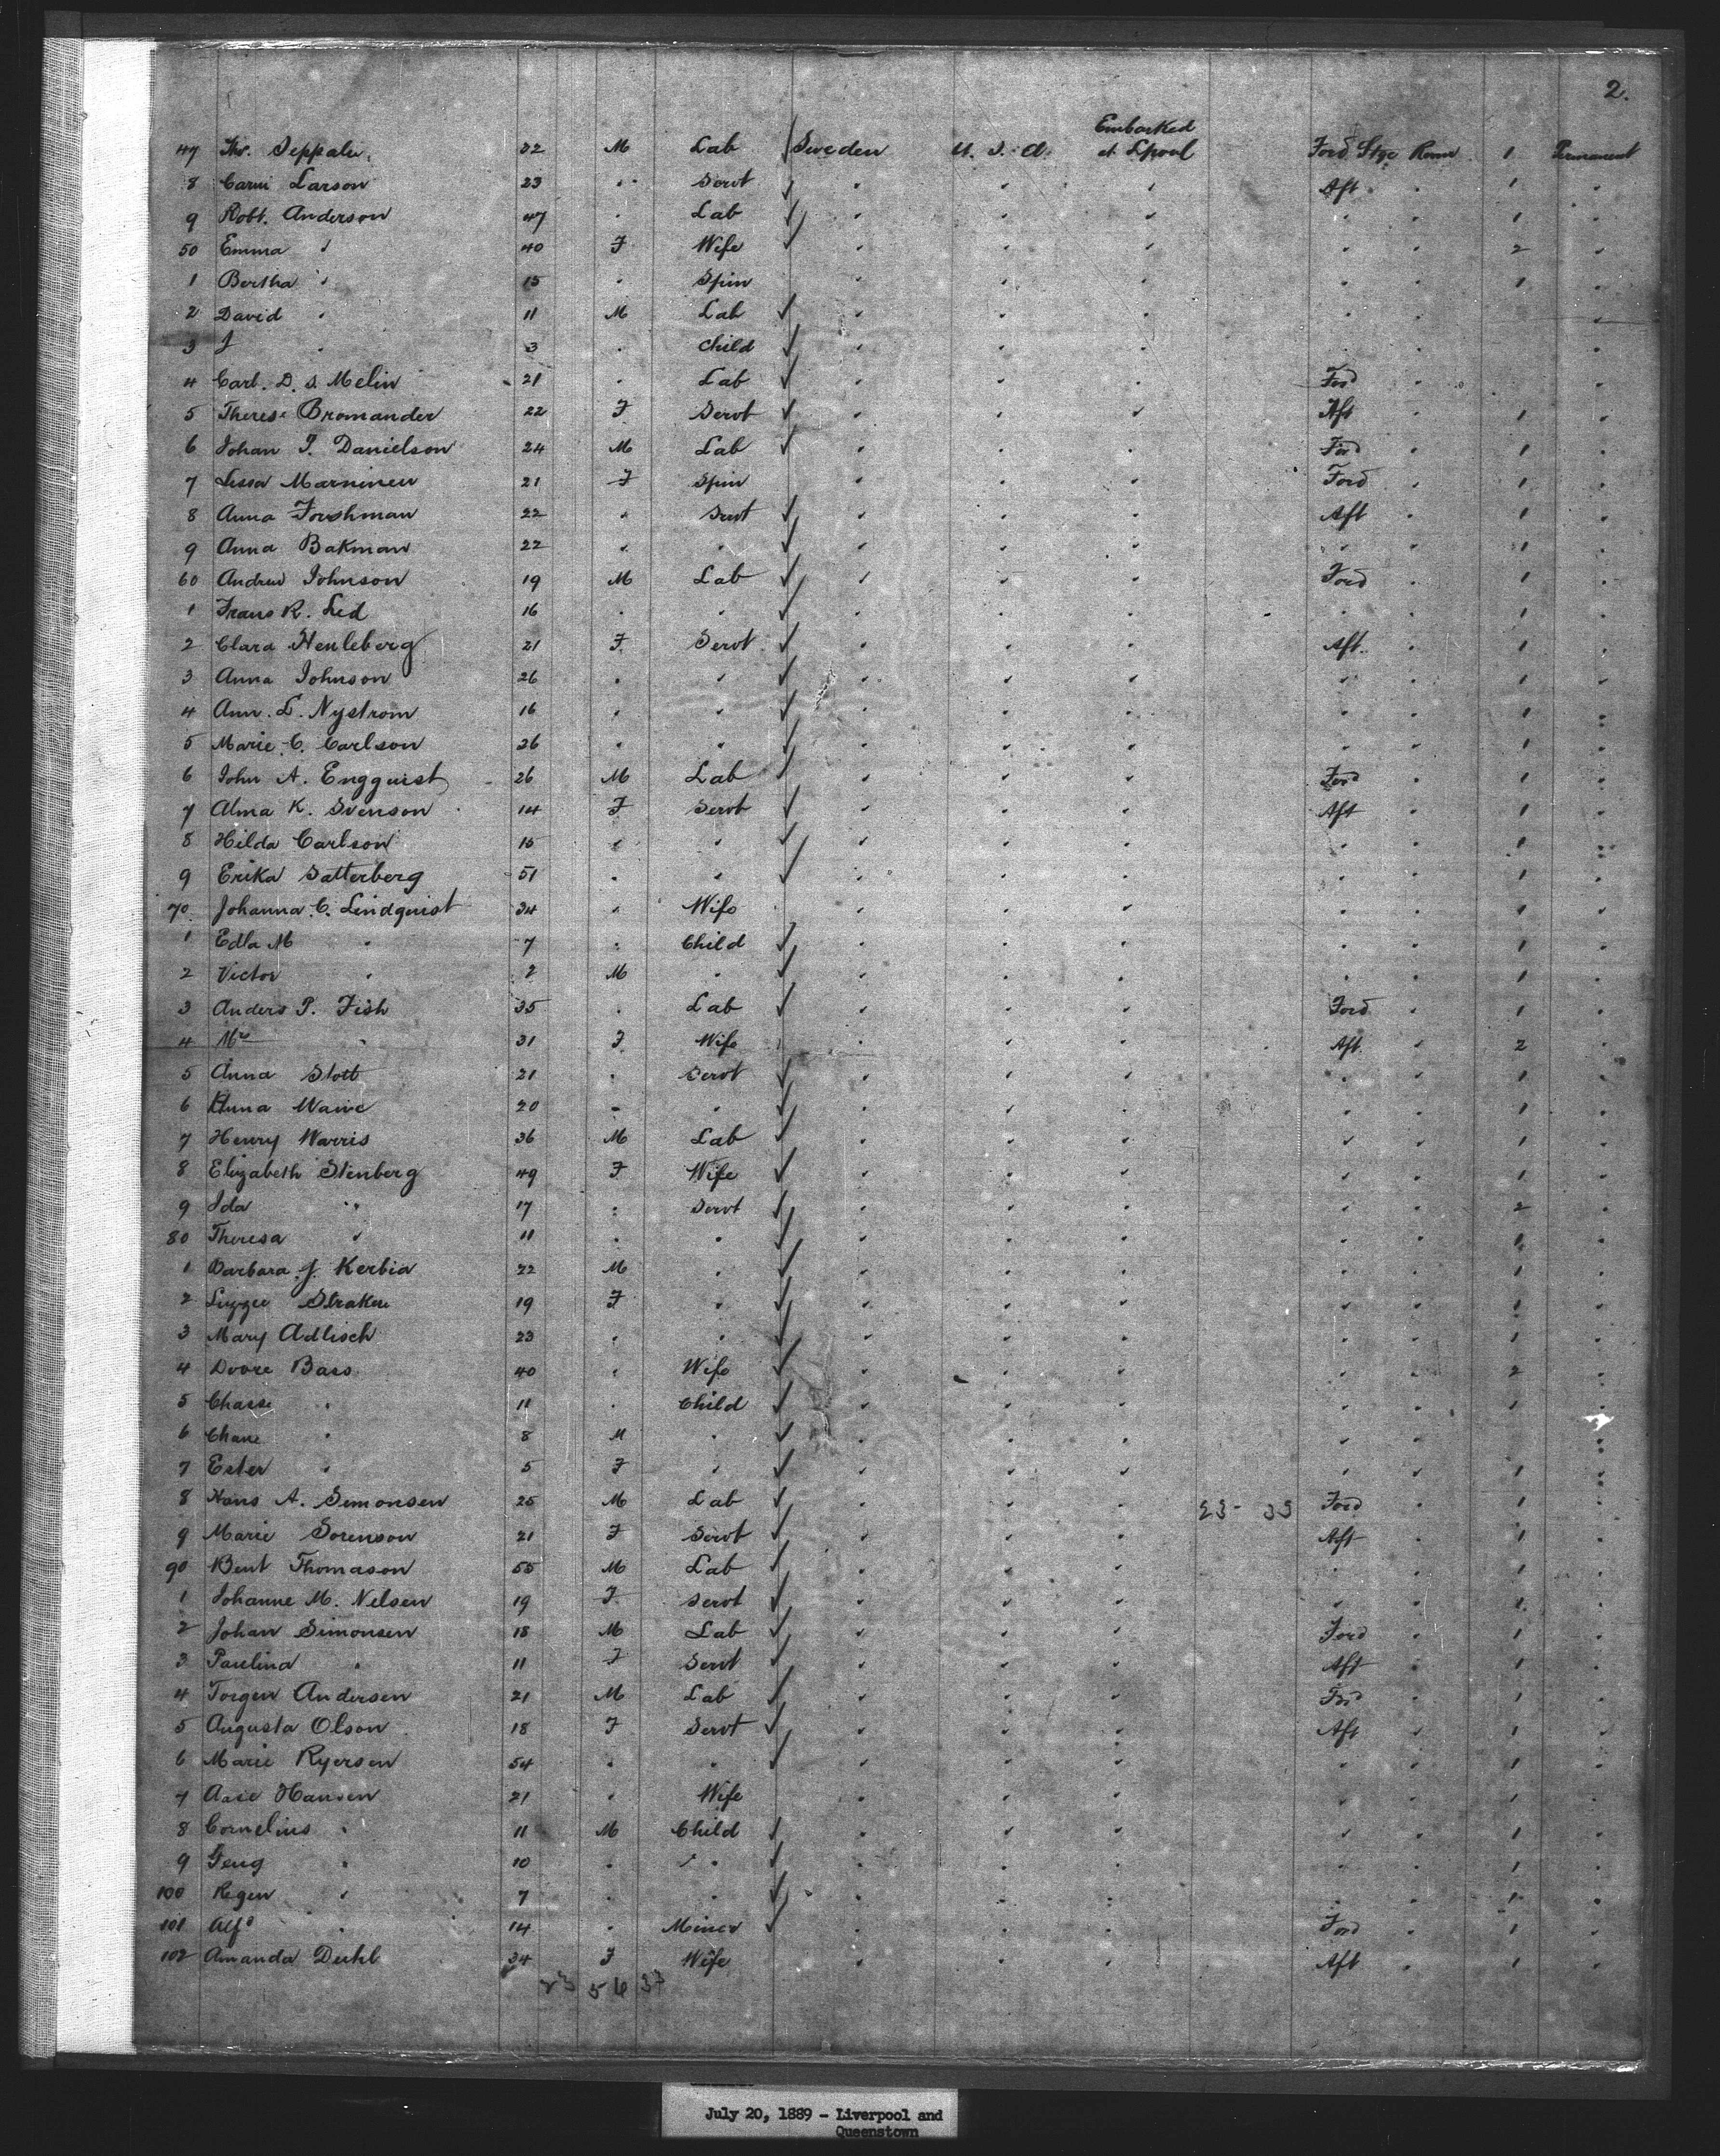 2.
Embarked
47 Seppala 32 M Lab Sweden U. S. A. at Lpool Ford Stge Room 1 Permanent
8 Carin Larson 23 " Servt " " " Aft " 1 "
9 Robt. Anderson 47 " Lab " " " " " 1 "
50 Emma " 40 F Wife " " " " " 2 "
1 Bertha " 15 " Spin " " " " " 1 "
2 David " 11 M Lab " " " " " "
3 J " 3 " Child " " " "
4 Carl. D. S. Melin 21 " Lab " " " Ford " "
5 Therese Bromander 22 F Servt " " " Aft " 1 "
6 Johan T. Danielson 24 M Lab " " " Ford " 1 "
7 Lissa Marninen 21 F Spin " " " Ford " 1 "
8 Anna Forshman 22 " Servt " " " Aft " 1 "
9 Anna Bakman 22 " " " " " " " 1 "
60 Andrew Johnson 19 M Lab " " " Ford " 1 "
1 Frans R. Lid 16 " " " " " " " 1 "
2 Clara Henleberg 21 F Servt " " " Aft " 1 "
3 Anna Johnson 26 " " " " " " " 1 "
4 Ann. L. Nystrom 16 " " " " " " " 1 "
5 Marie C. Carlson 26 " " " " " " " 1 "
6 John A. Engquist 26 M Lab " " " Ford " 1 "
7 Alma K. Svenson 14 F Servt " " " Aft " 1 "
8 Hilda Carlson 15 " " " " " " " 1 "
9 Erika Satterberg 51 " " " " " " " 1 "
70 Johanna C. Lindquist 34 " Wife " " " " " 1 "
1 Edla M " 7 " Child " " " " " 1 "
2 Victor " 2 M " " " " " " 1 "
3 Anders P. Fish 35 " Lab " " " Ford " 1 "
4 Mrs " 31 F Wife " " " Aft " 2 "
5 Anna Stott 21 " Servt " " " " " 1 "
6 Anna Waine 20 " " " " " " " 1 "
7 Henry Warris 36 M Lab " " " " " 1 "
8 Elizabeth Stenberg 49 F Wife " " " " " 1 "
9 Ida " 17 " Servt " " " " " 2 "
80 Theresa " 11 " " " " " " " 1 "
1 Barbara J. Kerbia 22 M " " " " " " 1 "
2 Lizzie Straken 19 F " " " " " " 1 "
3 Mary Adlisch 23 " " " " " " " 1 "
4 Dvore Bass 40 " Wife " " " " " 2 "
5 Chasse " 11 " Child " " " " " 1 "
6 Chane " 8 M " " " " " " "
7 Ester " 5 F " " " " " " 1 "
8 Hans A. Simonsen 25 M Lab " " " 23- 33 Ford " 1 "
9 Marie Sorenson 21 F Servt " " " Aft " 1 "
90 Bent Thomason 55 M Lab " " " " " 1 "
1 Johanne M. Nelsen 19 F Servt " " " " " 1 "
2 Johan Simonsen 18 M Lab " " " Ford " 1 "
3 Paulina " 11 F Servt " " " Aft " 1 "
4 Torgen Andersen 21 M Lab " " " Ford " 1 "
5 Augusta Olson 18 F Servt " " " Aft " 1 "
6 Marie Ryersen 54 " " " " " " " 1 "
7 Asie Hansen 21 " Wife " " " " " 1 "
8 Cornelius " 11 M Child " " " " " 1 "
9 " 10 " " " " " " " 1 "
100 Regen " 7 " " " " " " " 1 "
101 Alfd " 14 " Miner " " " Ford " 1 "
102 Amanda 34 F Wife " " " Aft " 1 "
23 56 37
July 20, 1889 - Liverpool and
Queenstown